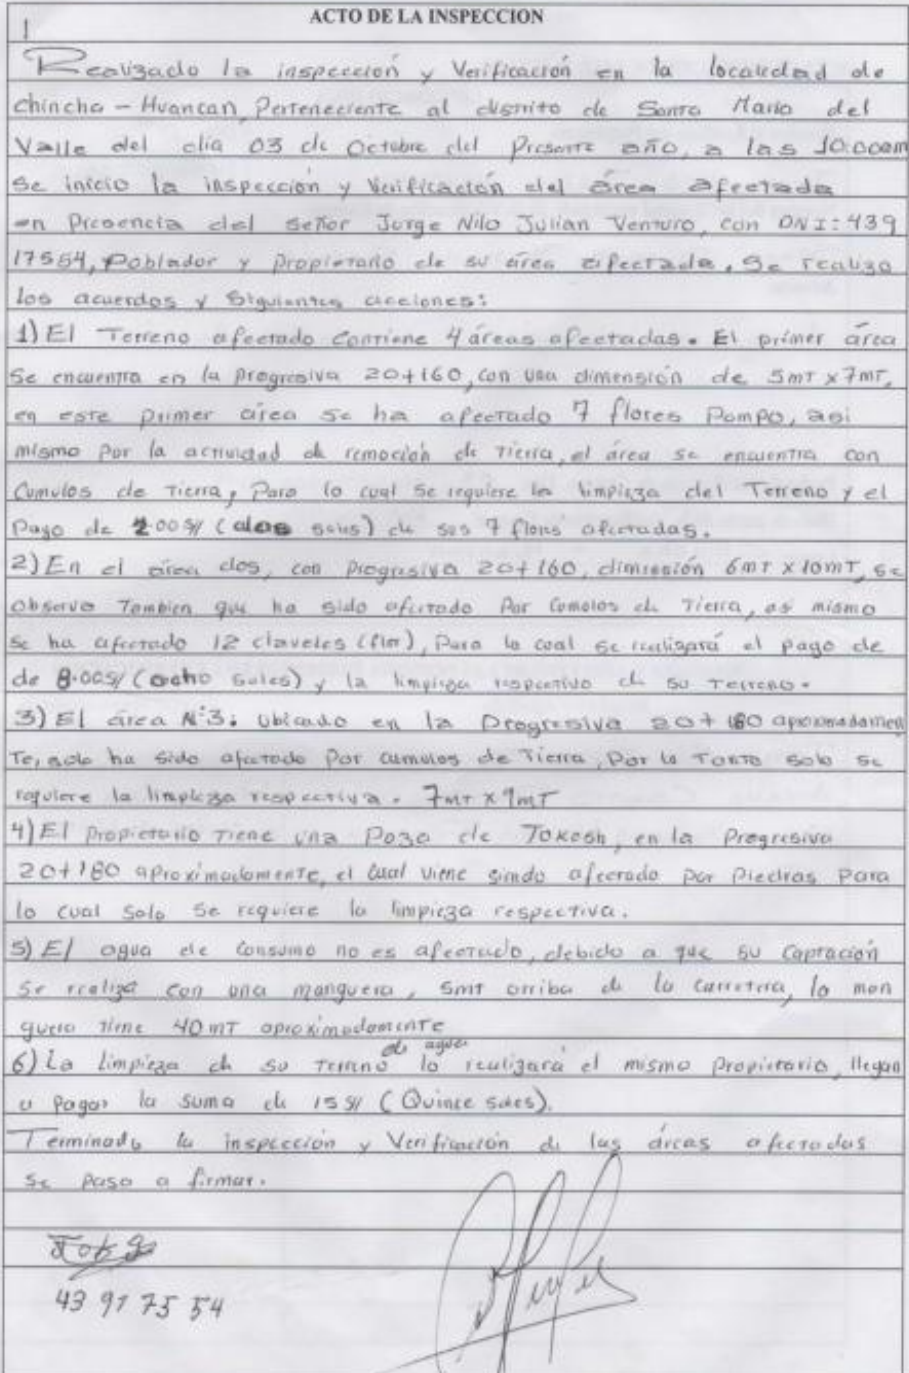 ACTO DE LA INSPECCION
Realizado la inspección y Verificación en la localidad de
Chincha - Huancan, Perteneciente al distrito de Santa Maria del
Valle del dia 03 de Octubre del Presente año, a las 10:00am
se inicio la inspección y Verificación del área afectada
en Presencia del señor Jorge Nilo Julian Venturo, con DNI: 439
17554, Poblador y propietario de su área afectada. Se realizo
los acuerdos y siguientes acciones:
1) El Terreno afectado Contiene 4 áreas afectadas. El primer área
se encuentra en la progresiva 20+160, con una dimensión de 5mT x 7mT,
en este primer área se ha afectado 7 flores Pompo, asi
mismo por la actividad de remoción de Tierra, el área se encuentra con
Cumulos de Tierra, Para lo cual se requiere la limpieza del Terreno y el
Pago de 2.00S/ (dos soles) de sus 7 flores afectadas.
2) En el área dos, con progresiva 20+160, dimensión 6mT x 10mT, se
observo Tambien que ha sido afectado Por Cumolos de Tierra, asi mismo
se ha afectado 12 claveles (flor), Para lo cual se realizará el pago de
de 8.00S/ (ocho soles) y la limpieza respectivo de su Terreno.
3) El área N°3: Ubicado en la Progresiva 20+180 aproximadamen
Te, solo ha sido afectado Por cumulos de Tierra, Por lo Tanto solo se
requiere la limpieza respectiva. 7mT x 9mT
4) El propietario Tiene una Poza de Tokosh, en la Progresiva
20+180 aproximadamente, el cual viene siendo afectado por Piedras Para
lo cual Solo Se requiere la limpieza respectiva.
5) El agua de Consumo no es afectado, debido a que su Captación
se realiza con una manguera, 5mt arriba de la Carretera, la man
guera tiene 40 mT aproximadamente
de agua
6) La limpieza de su Terreno lo realizará el mismo Propietario, llegan
a pagar la suma de 15 S/ (Quince soles).
Terminado la inspección y Verificación de las áreas afectadas
se paso a firmar.
43 91 75 54